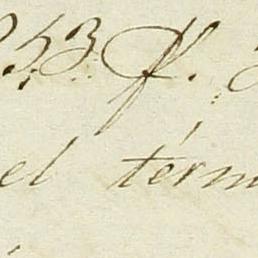 253 f.
el térm